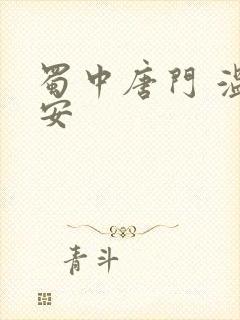 蜀中唐門 溫
安
青斗